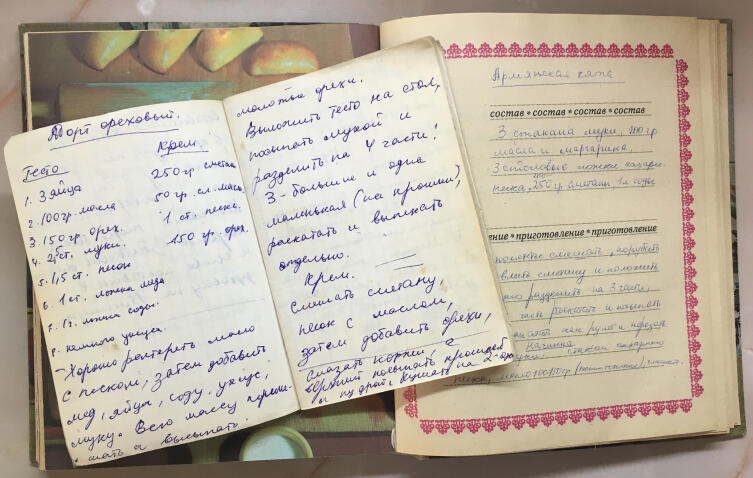 Торт ореховый.
Тесто
1. 3 яйца
2. 100 гр. масла
3. 150 гр. орех.
4. 2 ст. муки.
5. 1,5 ст. песок
6. 1 ст. ложка меда
7. 1 ч. ложка соды
8. немного уксуса.
Крем.
250 гр. сметан.
50 гр. сл. масл.
1 ст. песка.
150 гр. орех.
- Хорошо растереть масло
с песком, затем добавить
мед, яйца, соду, уксус,
муку. Всю массу переме-
шать и высыпать
молотые орехи.
Выложить тесто на стол,
посыпать мукой и
разделить на 4 части:
3 - большие и одна
маленькая (на крошки),
раскатать и выпекать
отдельно.
Крем.
Смешать сметану,
песок с маслом,
затем добавить орехи,
смазать коржи, а
верхний посыпать крошкой
и пудрой. Кушать на 2-ой
Армянская кята
состав * состав * состав * состав
3 стакана муки, 200 гр.
масла и маргарина,
3 столовые ложки сахарн.
песка, 250 гр сметаны 1 ч соды
ение * приготовление * приготовление
смешать, порубить
сметану и положить
разделить на 3 части,
раскатать и посыпать
как рулет и нарезать
начинка
стакан сахарного
песка, масло 100 гр